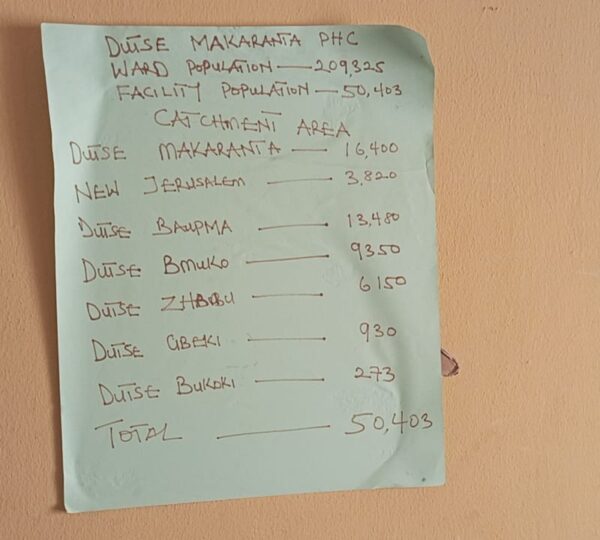 DUTSE MAKARANTA PHC
WARD POPULATION — 209,325
FACILITY POPULATION — 50,403
CATCHMENT AREA
DUTSE MAKARANTA — 16,400
NEW JERUSALEM — 3,820
DUTSE BAUPMA — 13,480
DUTSE BMUKO — 9350
DUTSE — 6150
DUTSE GBEKI — 930
DUTSE BUKOKI — 273
TOTAL — 50,403